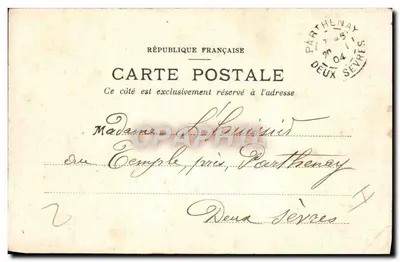 RÉPUBLIQUE FRANÇAISE
CARTE POSTALE
Ce côté est exclusivement réservé à l'adresse
PARTHENAY
04
DEUX SÈVRES
Madame
au Temple, près, Parthenay
Deux Sèvres